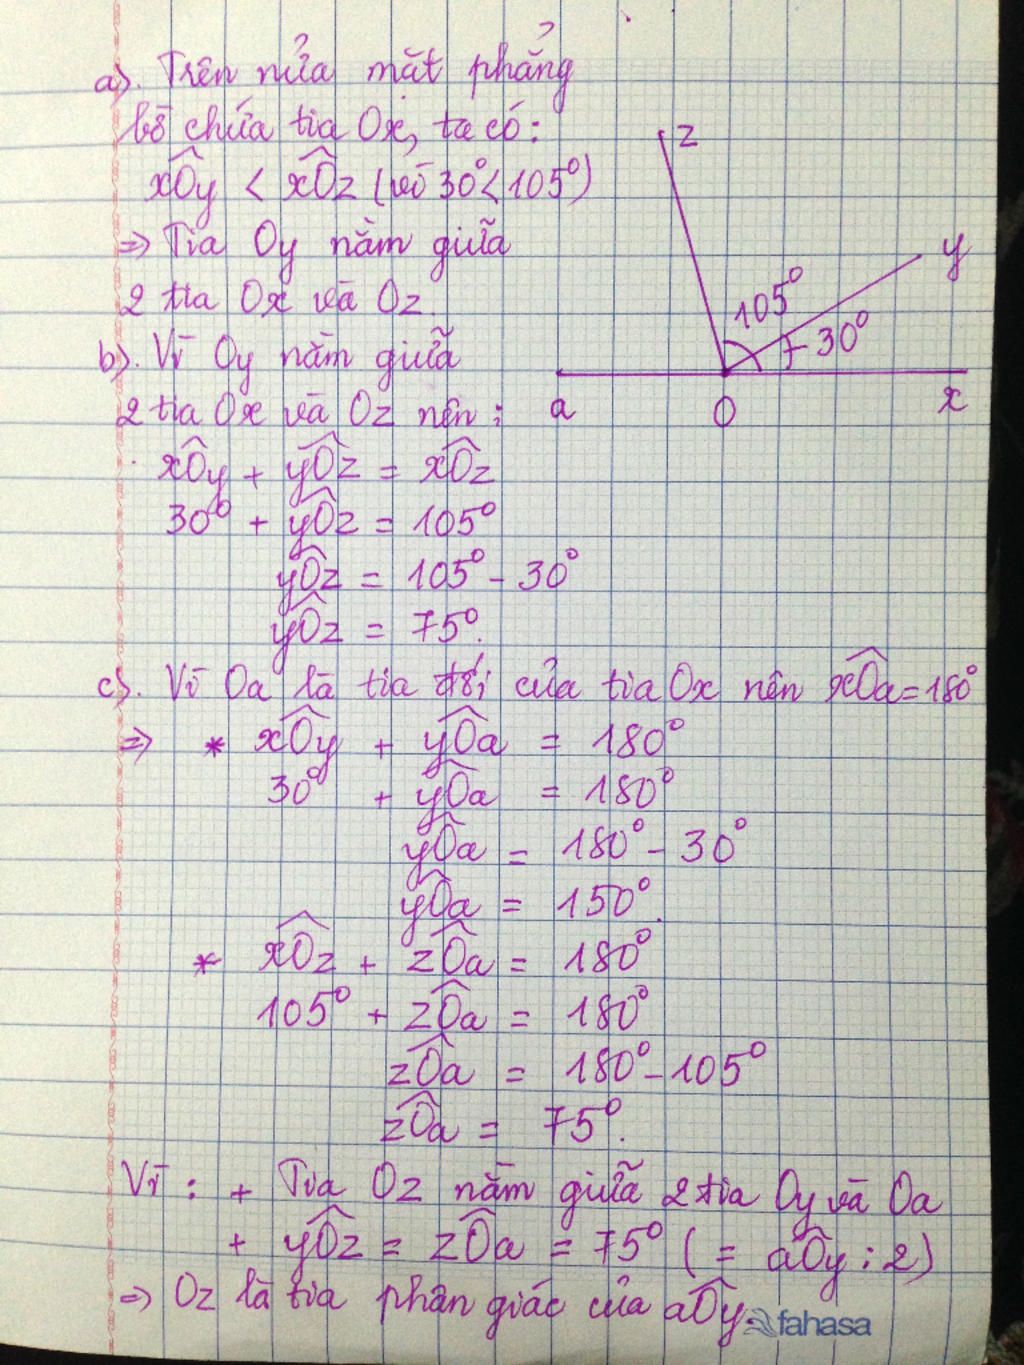 a). Trên nửa mặt phẳng
bờ chứa tia Ox, ta có:
xÔy < xÔz (vì 30° < 105°)
=> Tia Oy nằm giữa
2 tia Ox và Oz.
z
y
105°
30°
a
O
x
b). Vì Oy nằm giữa
2 tia Ox và Oz nên:
xÔy + yÔz = xÔz
30° + yÔz = 105°
yÔz = 105° - 30°
yÔz = 75°.
c). Vì Oa là tia đối của tia Ox nên xÔa = 180°
=> * xÔy + yÔa = 180°
30° + yÔa = 180°
yÔa = 180° - 30°
yÔa = 150°.
* xÔz + zÔa = 180°
105° + zÔa = 180°
zÔa = 180° - 105°
zÔa = 75°.
Vì: + Tia Oz nằm giữa 2 tia Oy và Oa
+ yÔz = zÔa = 75° (= aÔy : 2)
=> Oz là tia phân giác của aÔy.
fahasa